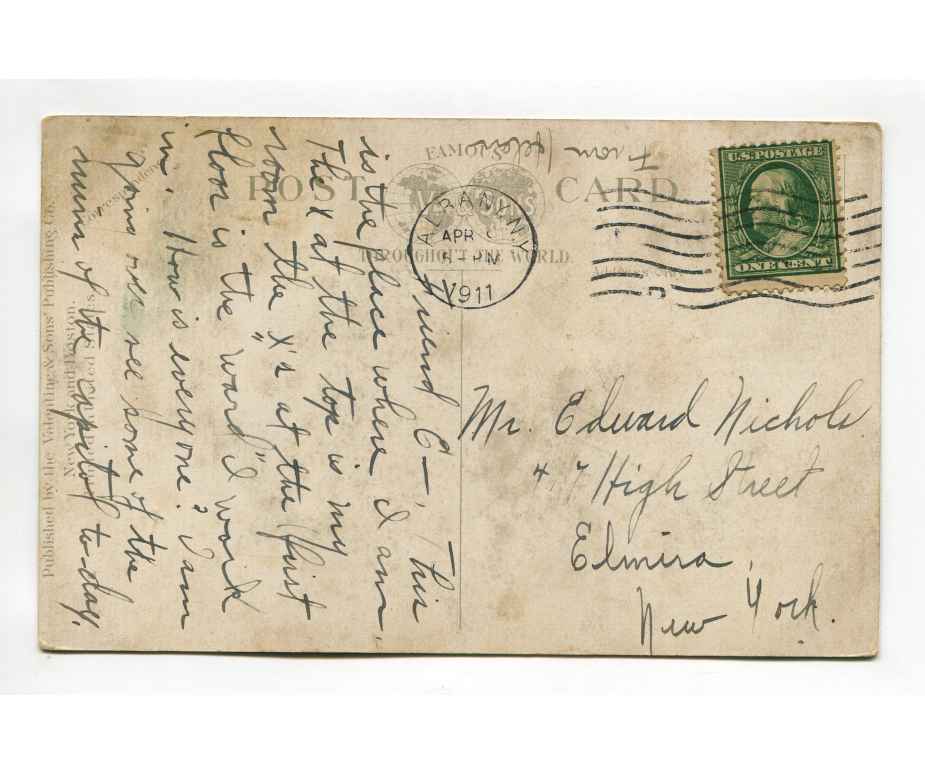 Friend E-, This
is the place where I am.
The X at the top is my
room the X's at the first
floor is the "ward" I work
in. How is everyone? I am
going over see some of the
ruins of the capitol to-day.
From Helen
FAMOUS
POST CARD
THROUGHOUT THE WORLD
ALBANY, N.Y.
APR
PM
1911
U.S. POSTAGE
ONE CENT
Mr. Edward Nichols
High Street
Elmira,
New York.
Published by the Valentine & Sons' Publishing Co.
New York and Boston.